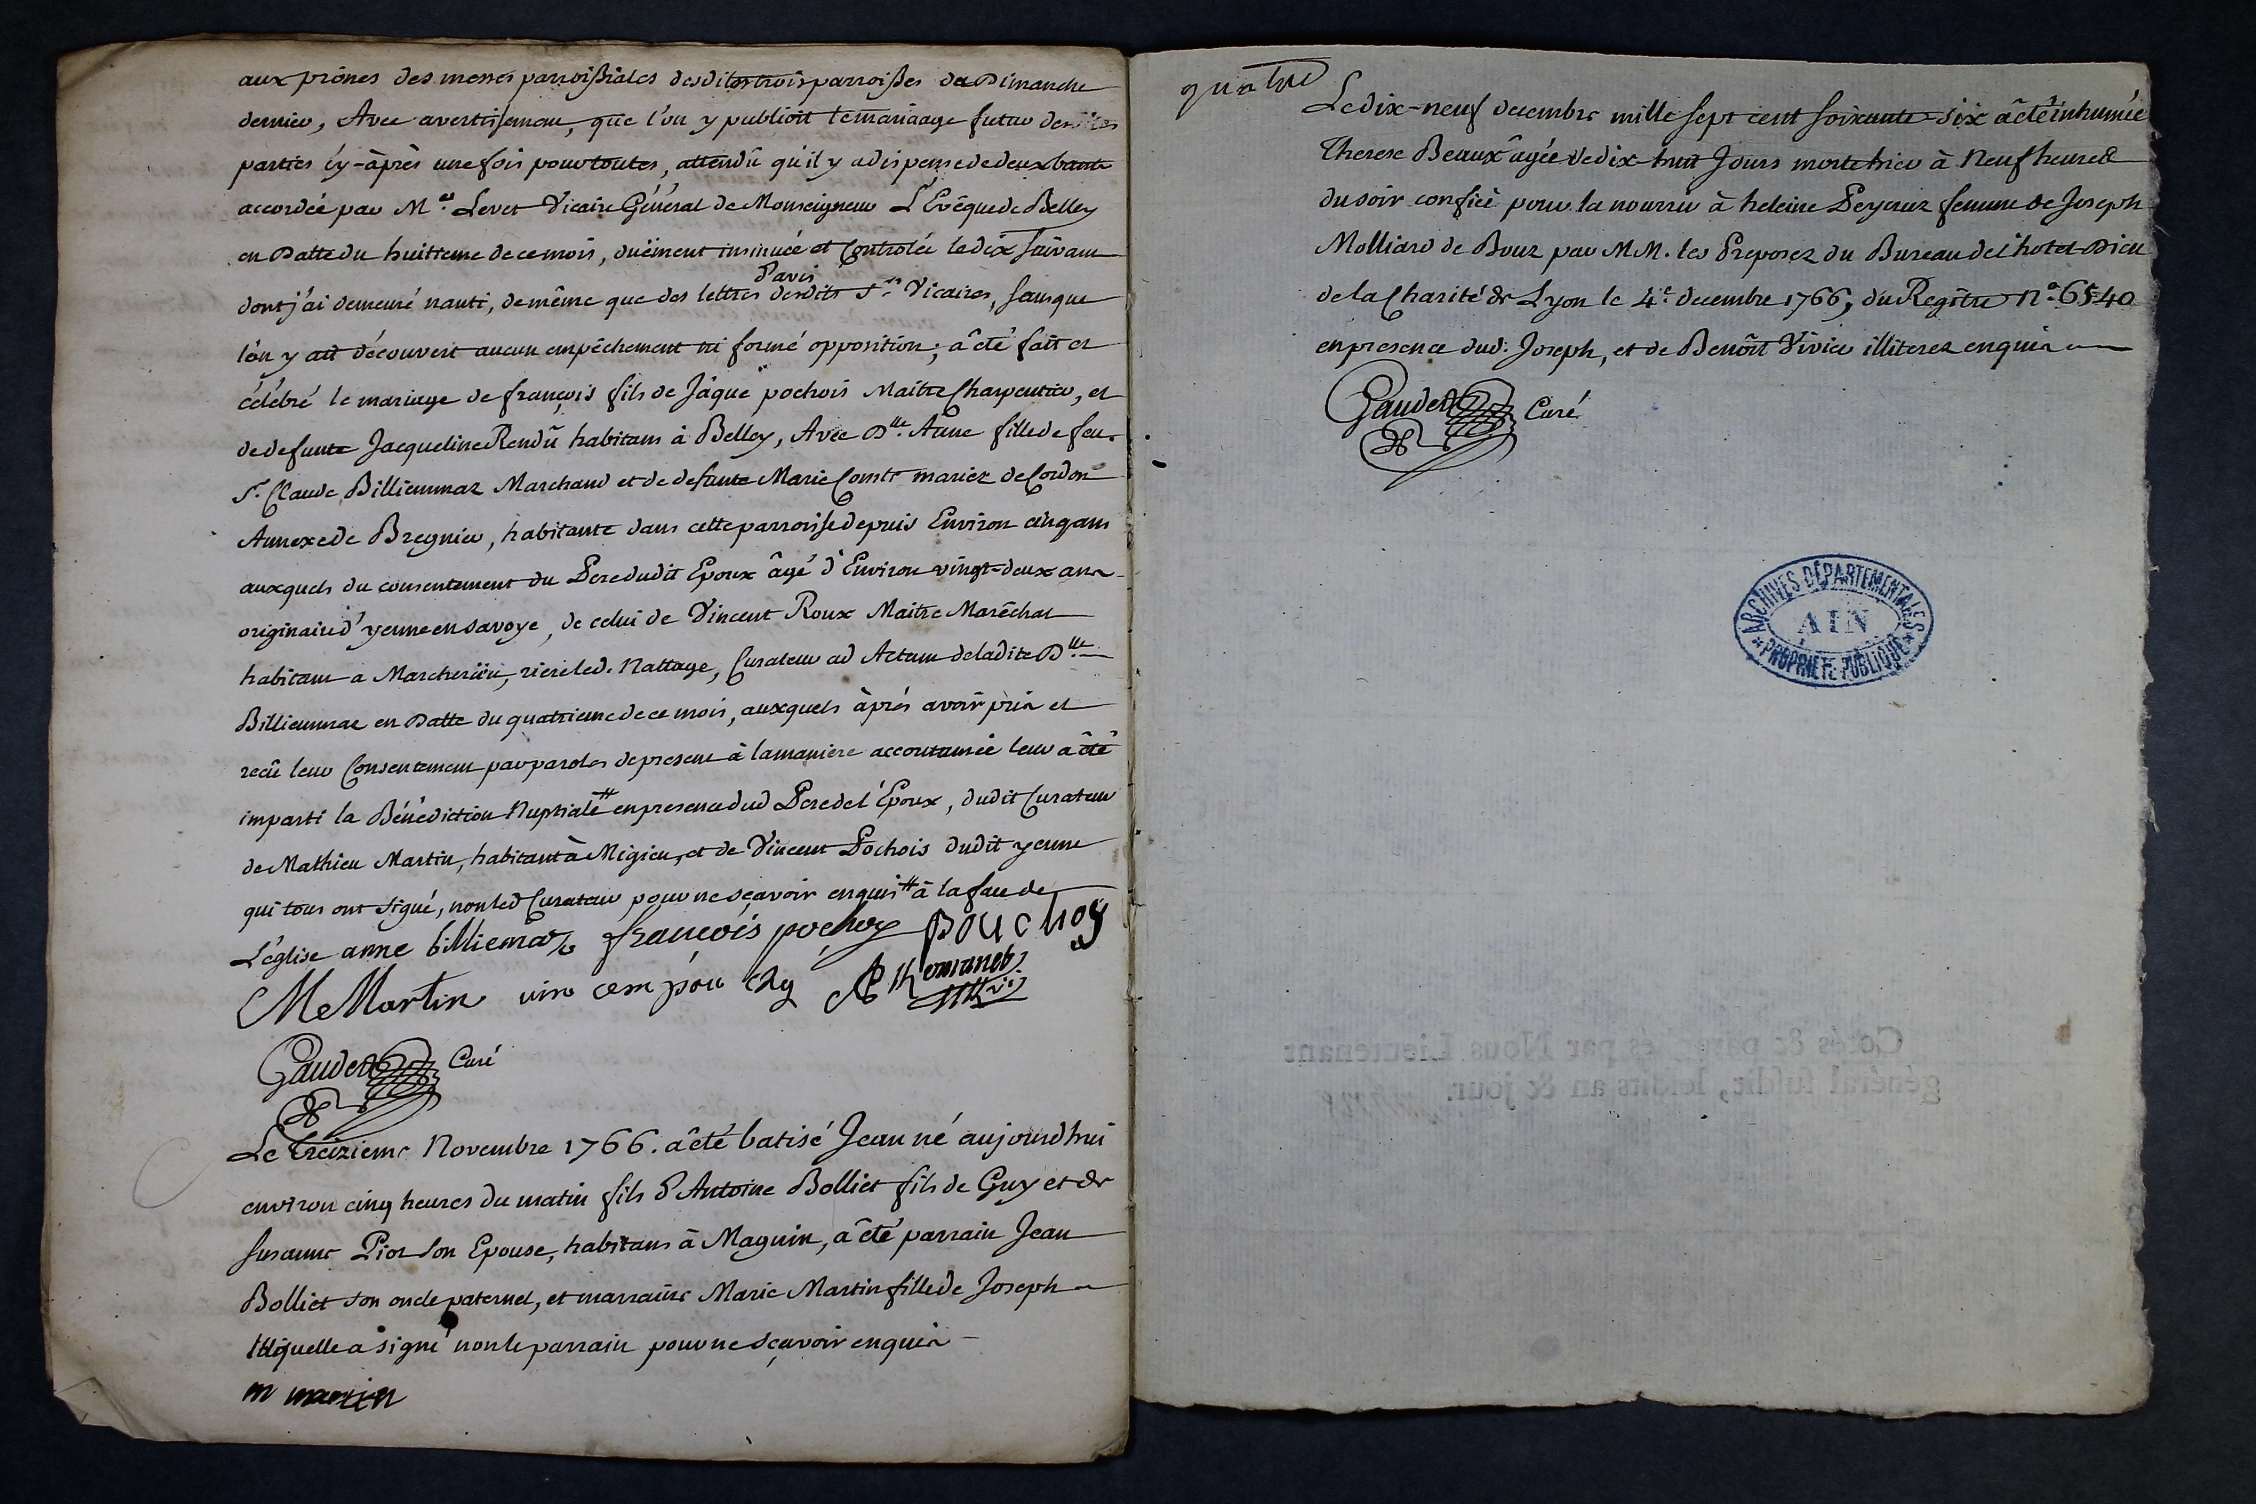 aux prônes des messes parroissiales desdites trois parroisses de Dimanche
dernier, Avec avertissement, que l'on y publioit le mariage futur desdites
parties cy-àprès une fois pour toutes, attendû qu'il y a dispense de deux bants
accordée par Mr. Levet Vicaire Général de Monseigneur L'Evêque de Belley
en Datte du huitieme de ce mois, duëment insinuée et Controlée le dix suivant
dont j'ai demeuré nanti, de même que des lettres d'avis desdits Srs. Vicaires, sans que
l'on y ait découvert aucun empêchement ni formé opposition; a été fait et
célébré le mariage de françois fils de Jâque pochois Maitre Charpentier, et
de defunte Jacqueline Rendû habitans à Belley, Avec Dlle. Anne fille de feu
Sr. Claude Billiemmaz Marchand et de defunte Marie Comte mariez de Cordon
Annexe de Bregnier, habitante dans cette parroisse depuis Environ cinq ans
auxquels du consentement du Pere dudit Epoux âgé d'Environ vingt-deux ans
originaire d'yenne en Savoye, de celui de Vincent Roux Maitre Maréchal
habitant a Marcherieu, riere led. Nattage, Curateur ad Actum de ladite Dlle
Billiemmaz en Datte du quatrieme de ce mois, auxquels àprés avoir pris et
recû leur Consentement par paroles de present à la maniere accoutumée leur a été
imparti la Bénédiction Nuptiale # en presence dud Pere de l'Epoux, dudit Curateur
de Mathieu Martin, habitant à Migieu, et de Vincent Pochois dudit yenne
qui tous ont signé, non led Curateur pour ne sçavoir enquis # à la face de
L'église anne billiemaz françois pochoy pouchoy
M Martin vin cem pou choy
Gauder Curé
Le treizieme Novembre 1766. a été batisé Jean né aujourd'hui
environ cinq heures du matin fils d'Antoine Bolliet fils de Guy et de
Susanne Piot son Epouse, habitans à Magnin, a été parrain Jean
Bolliet son oncle paternel, et marraine Marie Martin fille de Joseph
laquelle a signé non le parrain pour ne sçavoir enquis
m martin
quatre
Le dix-neuf decembre mille sept cent soixante-six a été inhumée
Therese Beaux âgée de dix huit Jours morte hier à Neuf heures
du soir confiée pour la nourrir à heleine Peycruz femme de Joseph
Molliard de Bouz par MM. les Preposez du Bureau de l'hotel Dieu
de la Charité de Lyon le 4e. decembre 1766, du Regître No. 6540
en presence dud. Joseph, et de Benoît Vivier illiterez enquis
Gauder Curé
ARCHIVES DÉPARTEMENTALES
AIN
PROPRIÉTÉ PUBLIQUE